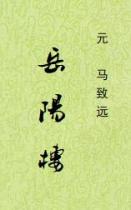 元 马致远
岳陽樓